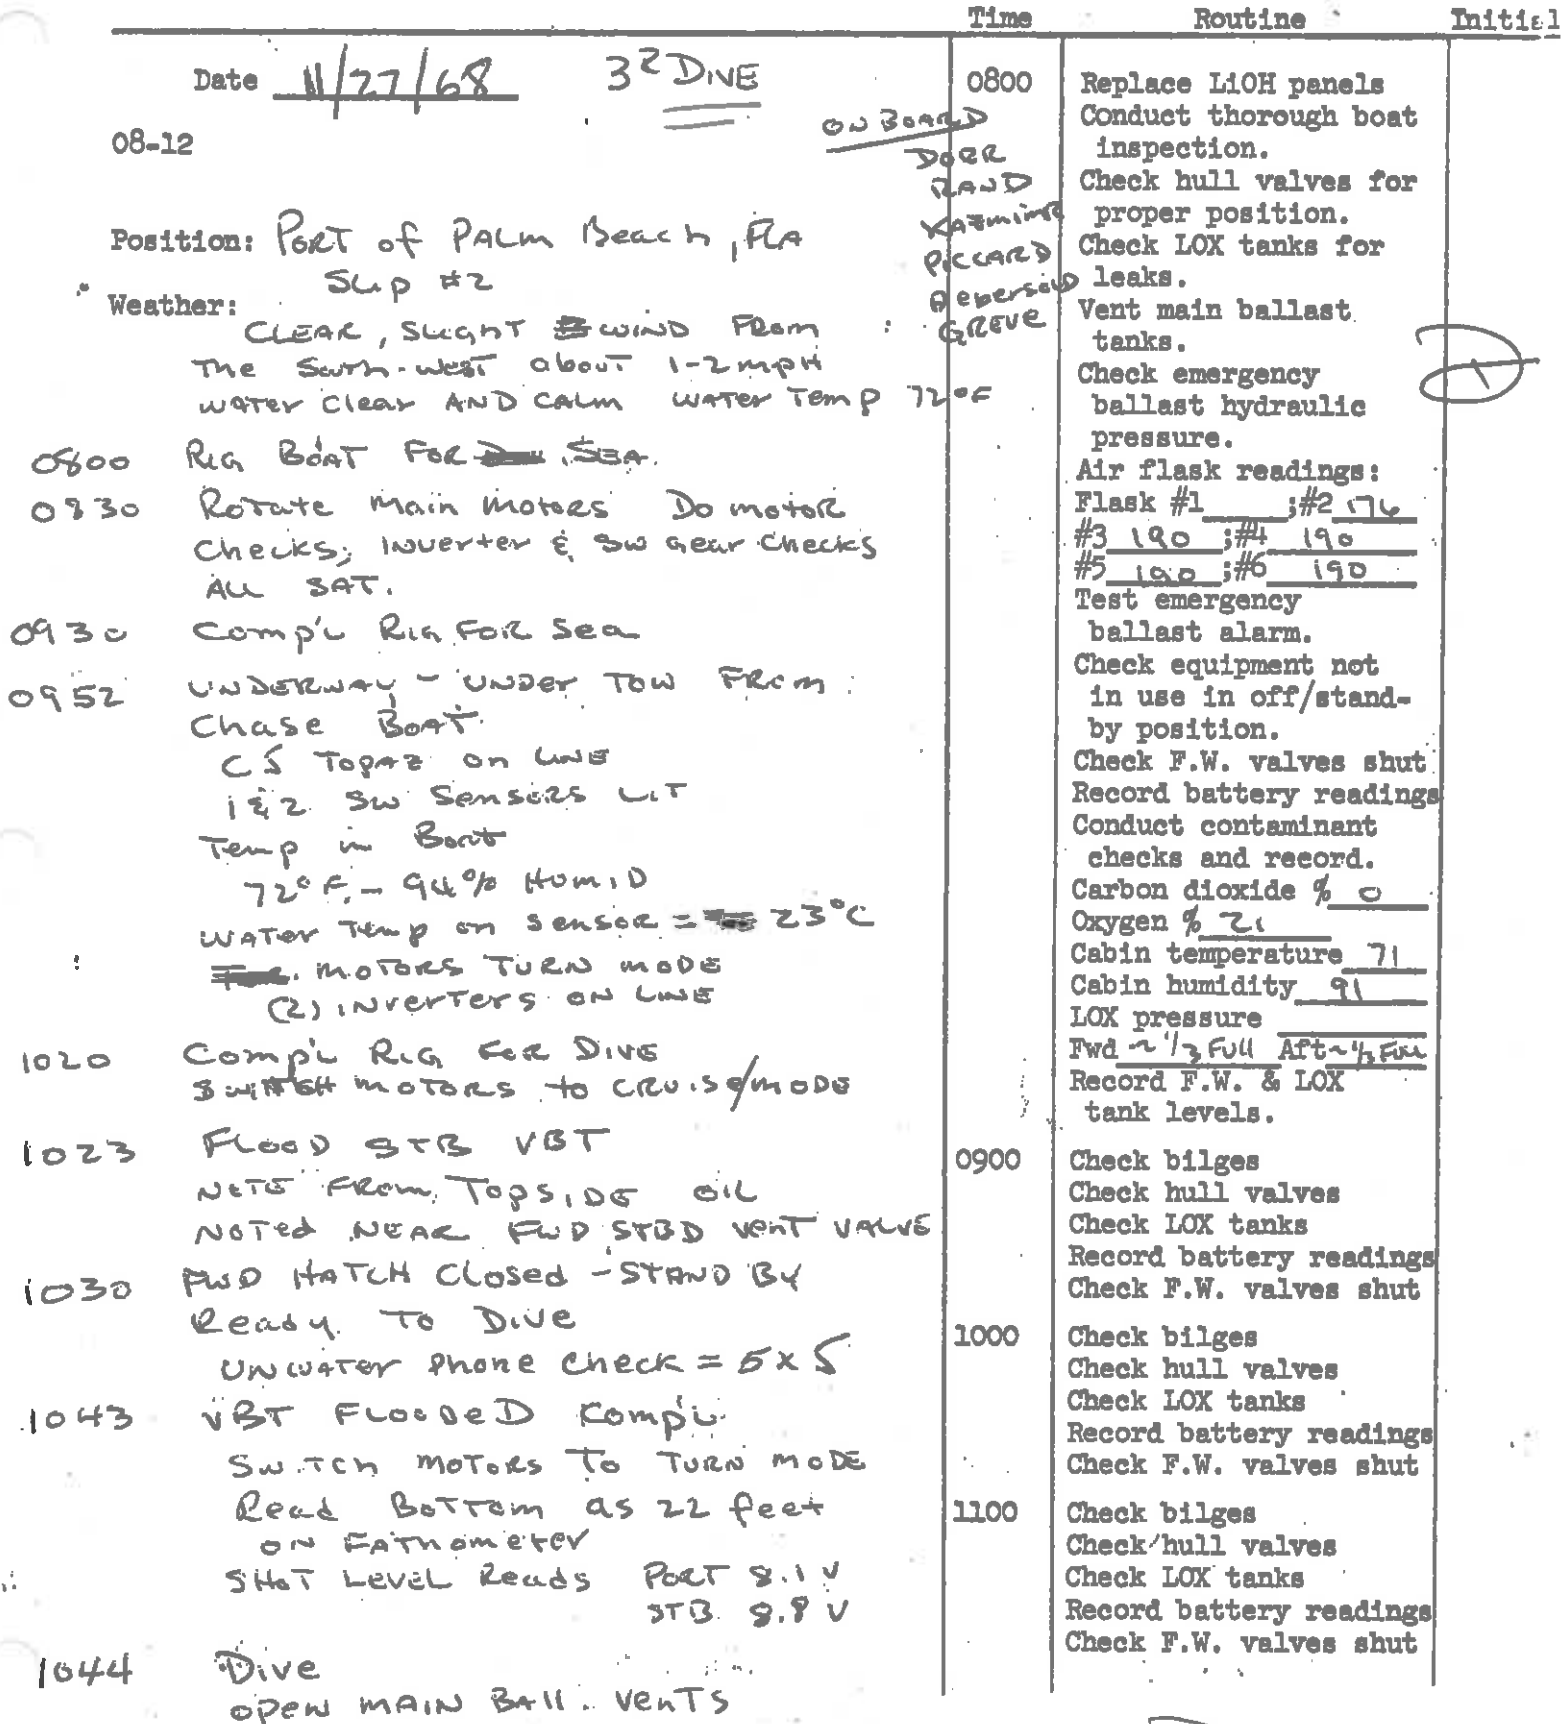 Time Routine Initial
Date 11/27/68 3R DIVE
08-12
ON BOARD
DORR
RAND
KAZMIMIR
PICCARD
Aebersold
GREVE
Position: PORT of PALM Beach, FLA
Slip #2
Weather:
CLEAR, SLIGHT WIND FROM
The South-west about 1-2 mpH
WATer Clear AND CALM WATER Temp 72°F
0800 RIG BOAT FOR SEA.
0830 Rotate Main Motors Do motor
Checks; inverter & SW Gear Checks
ALL SAT.
0930 Comp'l RIG FOR Sea
0952 UNDERWAY - UNDer TOW FROM
Chase BOAT.
CS TOPAZ on LINE
1 & 2 SW Sensors LIT
Temp in Boat
72°F. - 94% HUMID
WATer Temp on sensor = 23°C
MOTORS TURN MODE
(2) INVerTerS ON LINE
1020 Comp'l RIG FOR DIVE
SWITCH MOTORS to CRUISE/MODE
1023 FLOOD STB VBT
NOTE FROM TOPSIDE OIL
NOTed NEAR FWD STBD VenT VALVE
1030 FWD HATCH Closed - STAND BY
Ready To Dive
UNWATer Phone Check = 5x5
1043 VBT FLOODeD Comp'l
Switch MOTORS TO TURN MODE
Read BOTTOM as 22 feet
ON FATHOMeTer
SHOT LEVEL Reads PORT 8.1 V
STB 8.8 V
1044 Dive
OPeN MAIN BAll. VenTS
0800 Replace LiOH panels
Conduct thorough boat
inspection.
Check hull valves for
proper position.
Check LOX tanks for
leaks.
Vent main ballast
tanks.
Check emergency
ballast hydraulic
pressure.
Air flask readings:
Flask #1 ;#2 176
#3 190 ;#4 190
#5 190 ;#6 190
Test emergency
ballast alarm.
Check equipment not
in use in off/stand-
by position.
Check F.W. valves shut
Record battery readings
Conduct contaminant
checks and record.
Carbon dioxide % 0
Oxygen % 21
Cabin temperature 71
Cabin humidity 91
LOX pressure
Fwd ~ 1/3 Full Aft ~ 1/3 Full
Record F.W. & LOX
tank levels.
0900 Check bilges
Check hull valves
Check LOX tanks
Record battery readings
Check F.W. valves shut
1000 Check bilges
Check hull valves
Check LOX tanks
Record battery readings
Check F.W. valves shut
1100 Check bilges
Check hull valves
Check LOX tanks
Record battery readings
Check F.W. valves shut